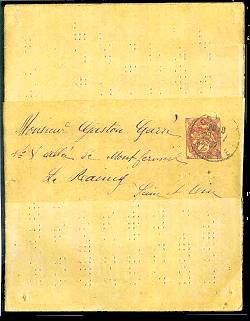 Monsieur Gaston Guerre
15 allée de Montfermeil
Le Raincy
Seine et Oise